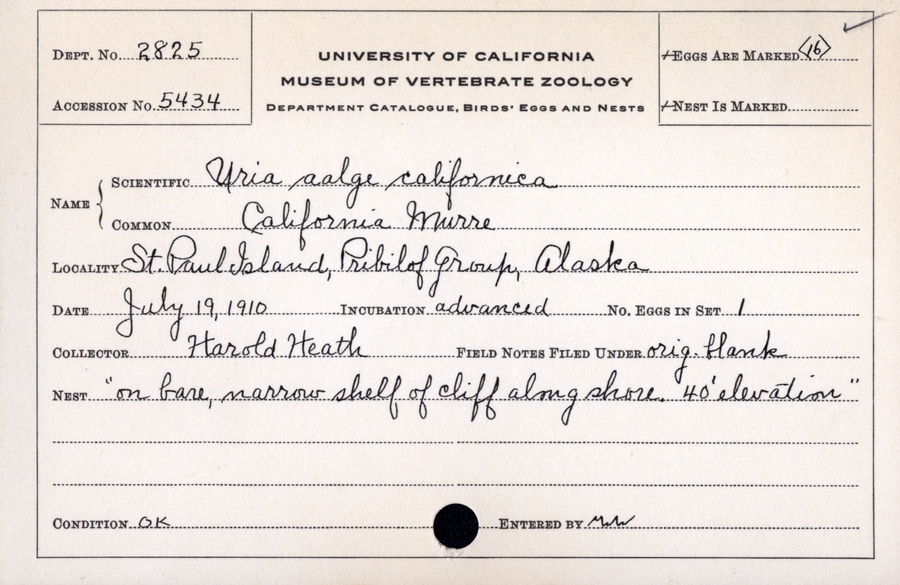 DEPT. NO. 2825
ACCESSION NO. 5434
UNIVERSITY OF CALIFORNIA
MUSEUM OF VERTEBRATE ZOOLOGY
DEPARTMENT CATALOGUE, BIRDS' EGGS AND NESTS
EGGS ARE MARKED 16
NEST IS MARKED
NAME
SCIENTIFIC Uria aalge californica
COMMON California Murre
LOCALITY St. Paul Island, Pribilof Group, Alaska
DATE July 19, 1910 INCUBATION advanced NO. EGGS IN SET 1
COLLECTOR Harold Heath FIELD NOTES FILED UNDER orig. blank
NEST "on bare, narrow shelf of cliff along shore. 40' elevation"
CONDITION OK ENTERED BY